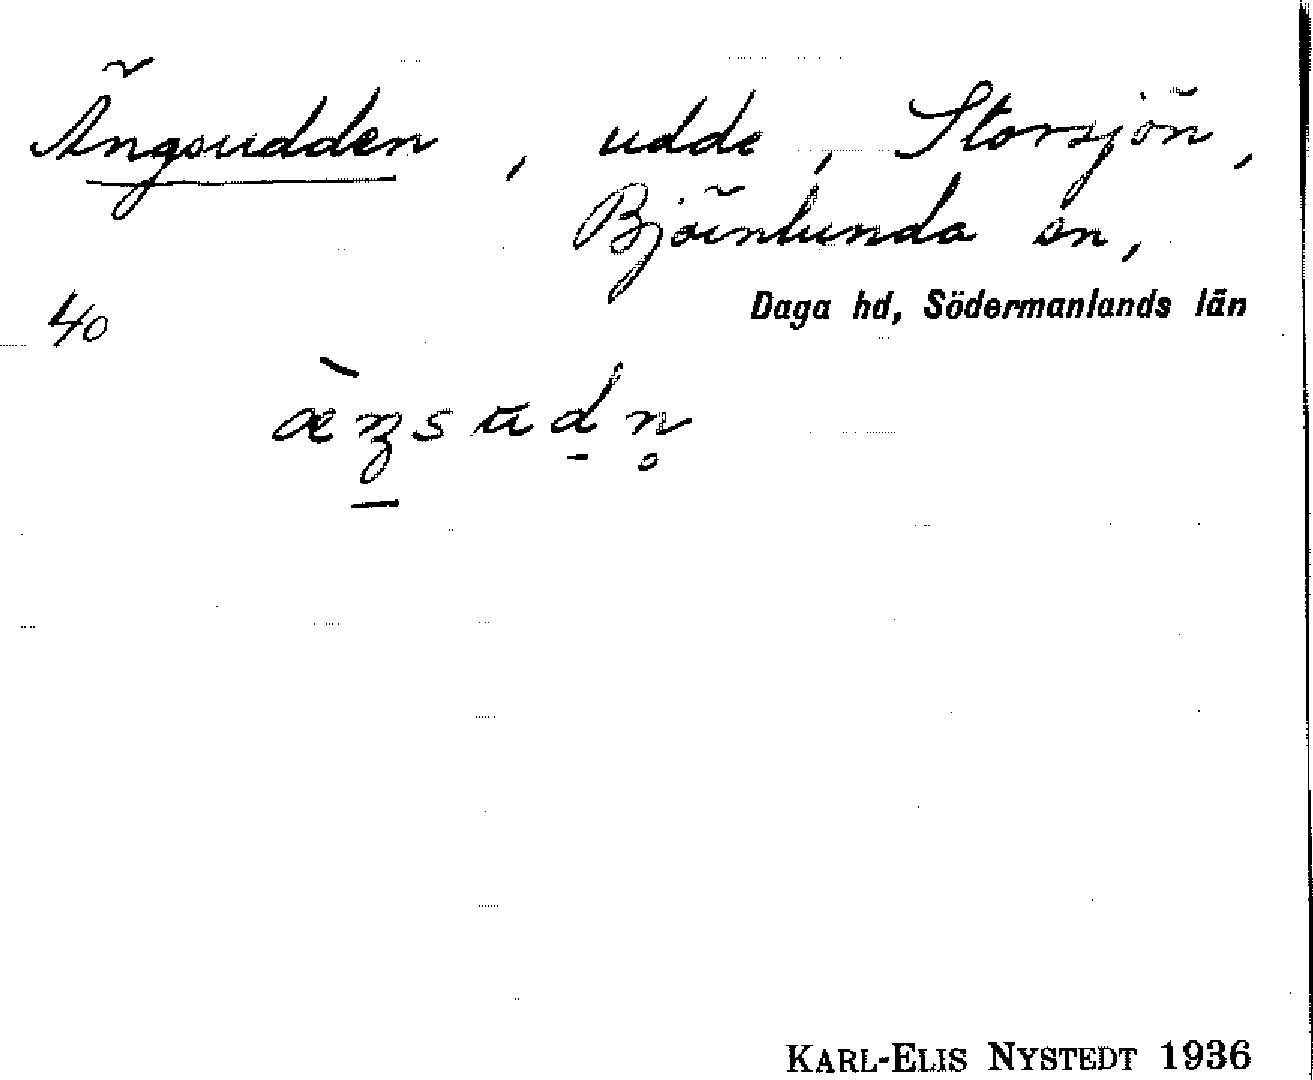 Ängsudden, udde, Storsjön,
Björnlunda sn,
Daga hd, Södermanlands län
40
KARL-ELIS NYSTEDT 1936